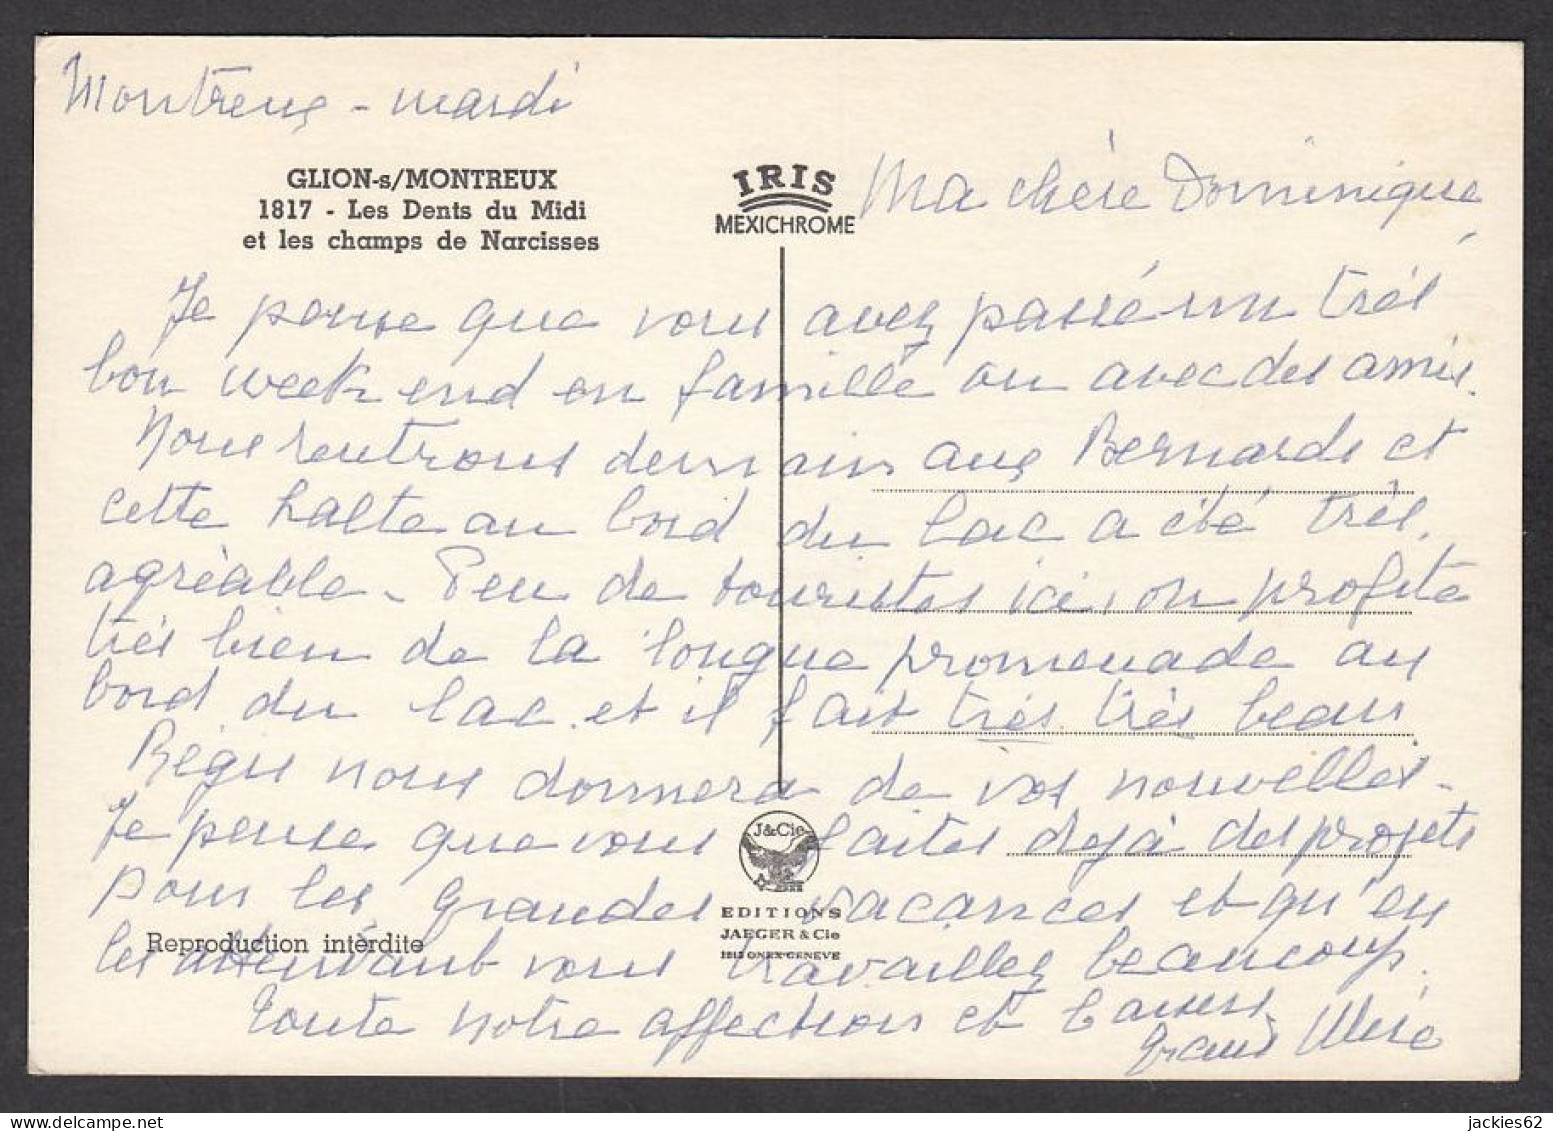 Montreux - mardi
GLION-s/MONTREUX
1817 - Les Dents du Midi
et les champs de Narcisses
IRIS
MEXICHROME
Ma chère Dominique,
Je pense que vous avez passé un très
bon week end en famille ou avec des amis.
Nous rentrons demain aux Bernards et
cette halte au bord du lac a été très
agréable - Peu de touristes ici, on profite
très bien de la longue promenade au
bord du lac et il fait très très beau
Régis nous donnera de vos nouvelles -
Je pense que vous faites dejà des projets
pour les grandes vacances et qu'en
les attendant vous travaillez beaucoup.
Toute notre affection et baisers
Grand Mère
J&Cie
EDITIONS
JAEGER & Cie
1213 ONEX-GENEVE
Reproduction intérdite
jackies62